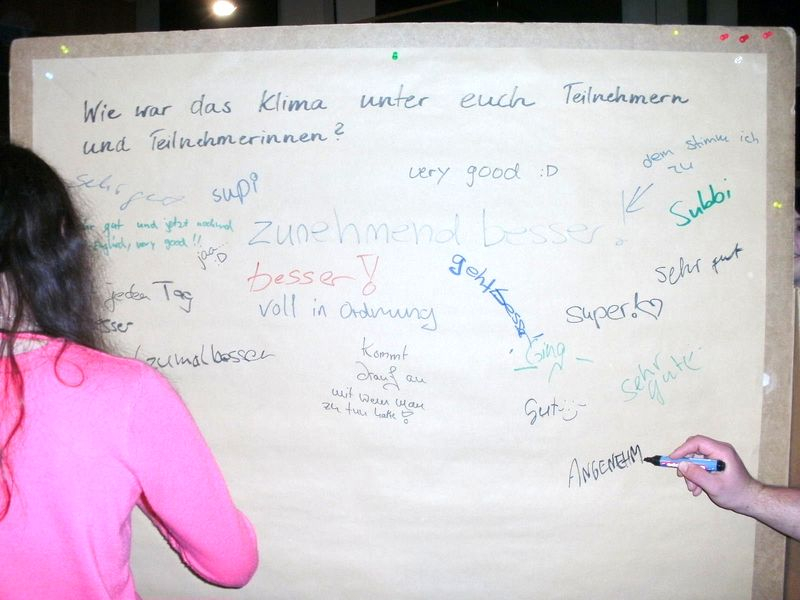 Wie war das Klima unter euch Teilnehmern
und Teilnehmerinnen?
sehr gut
supi
very good :D
dem stimm ich
zu
Subbi
gut und jetzt nochmal
Englisch, very good!!
jaa :D
zunehmend besser!
besser!
voll in Ordnung
geht besser
sehr gut
super! ♡
jeden Tag
besser
zumal besser
Kommt
drauf an
mit wem man
zu tun hatte!
Ging
sehr
gute
Gut
ANGENEHM